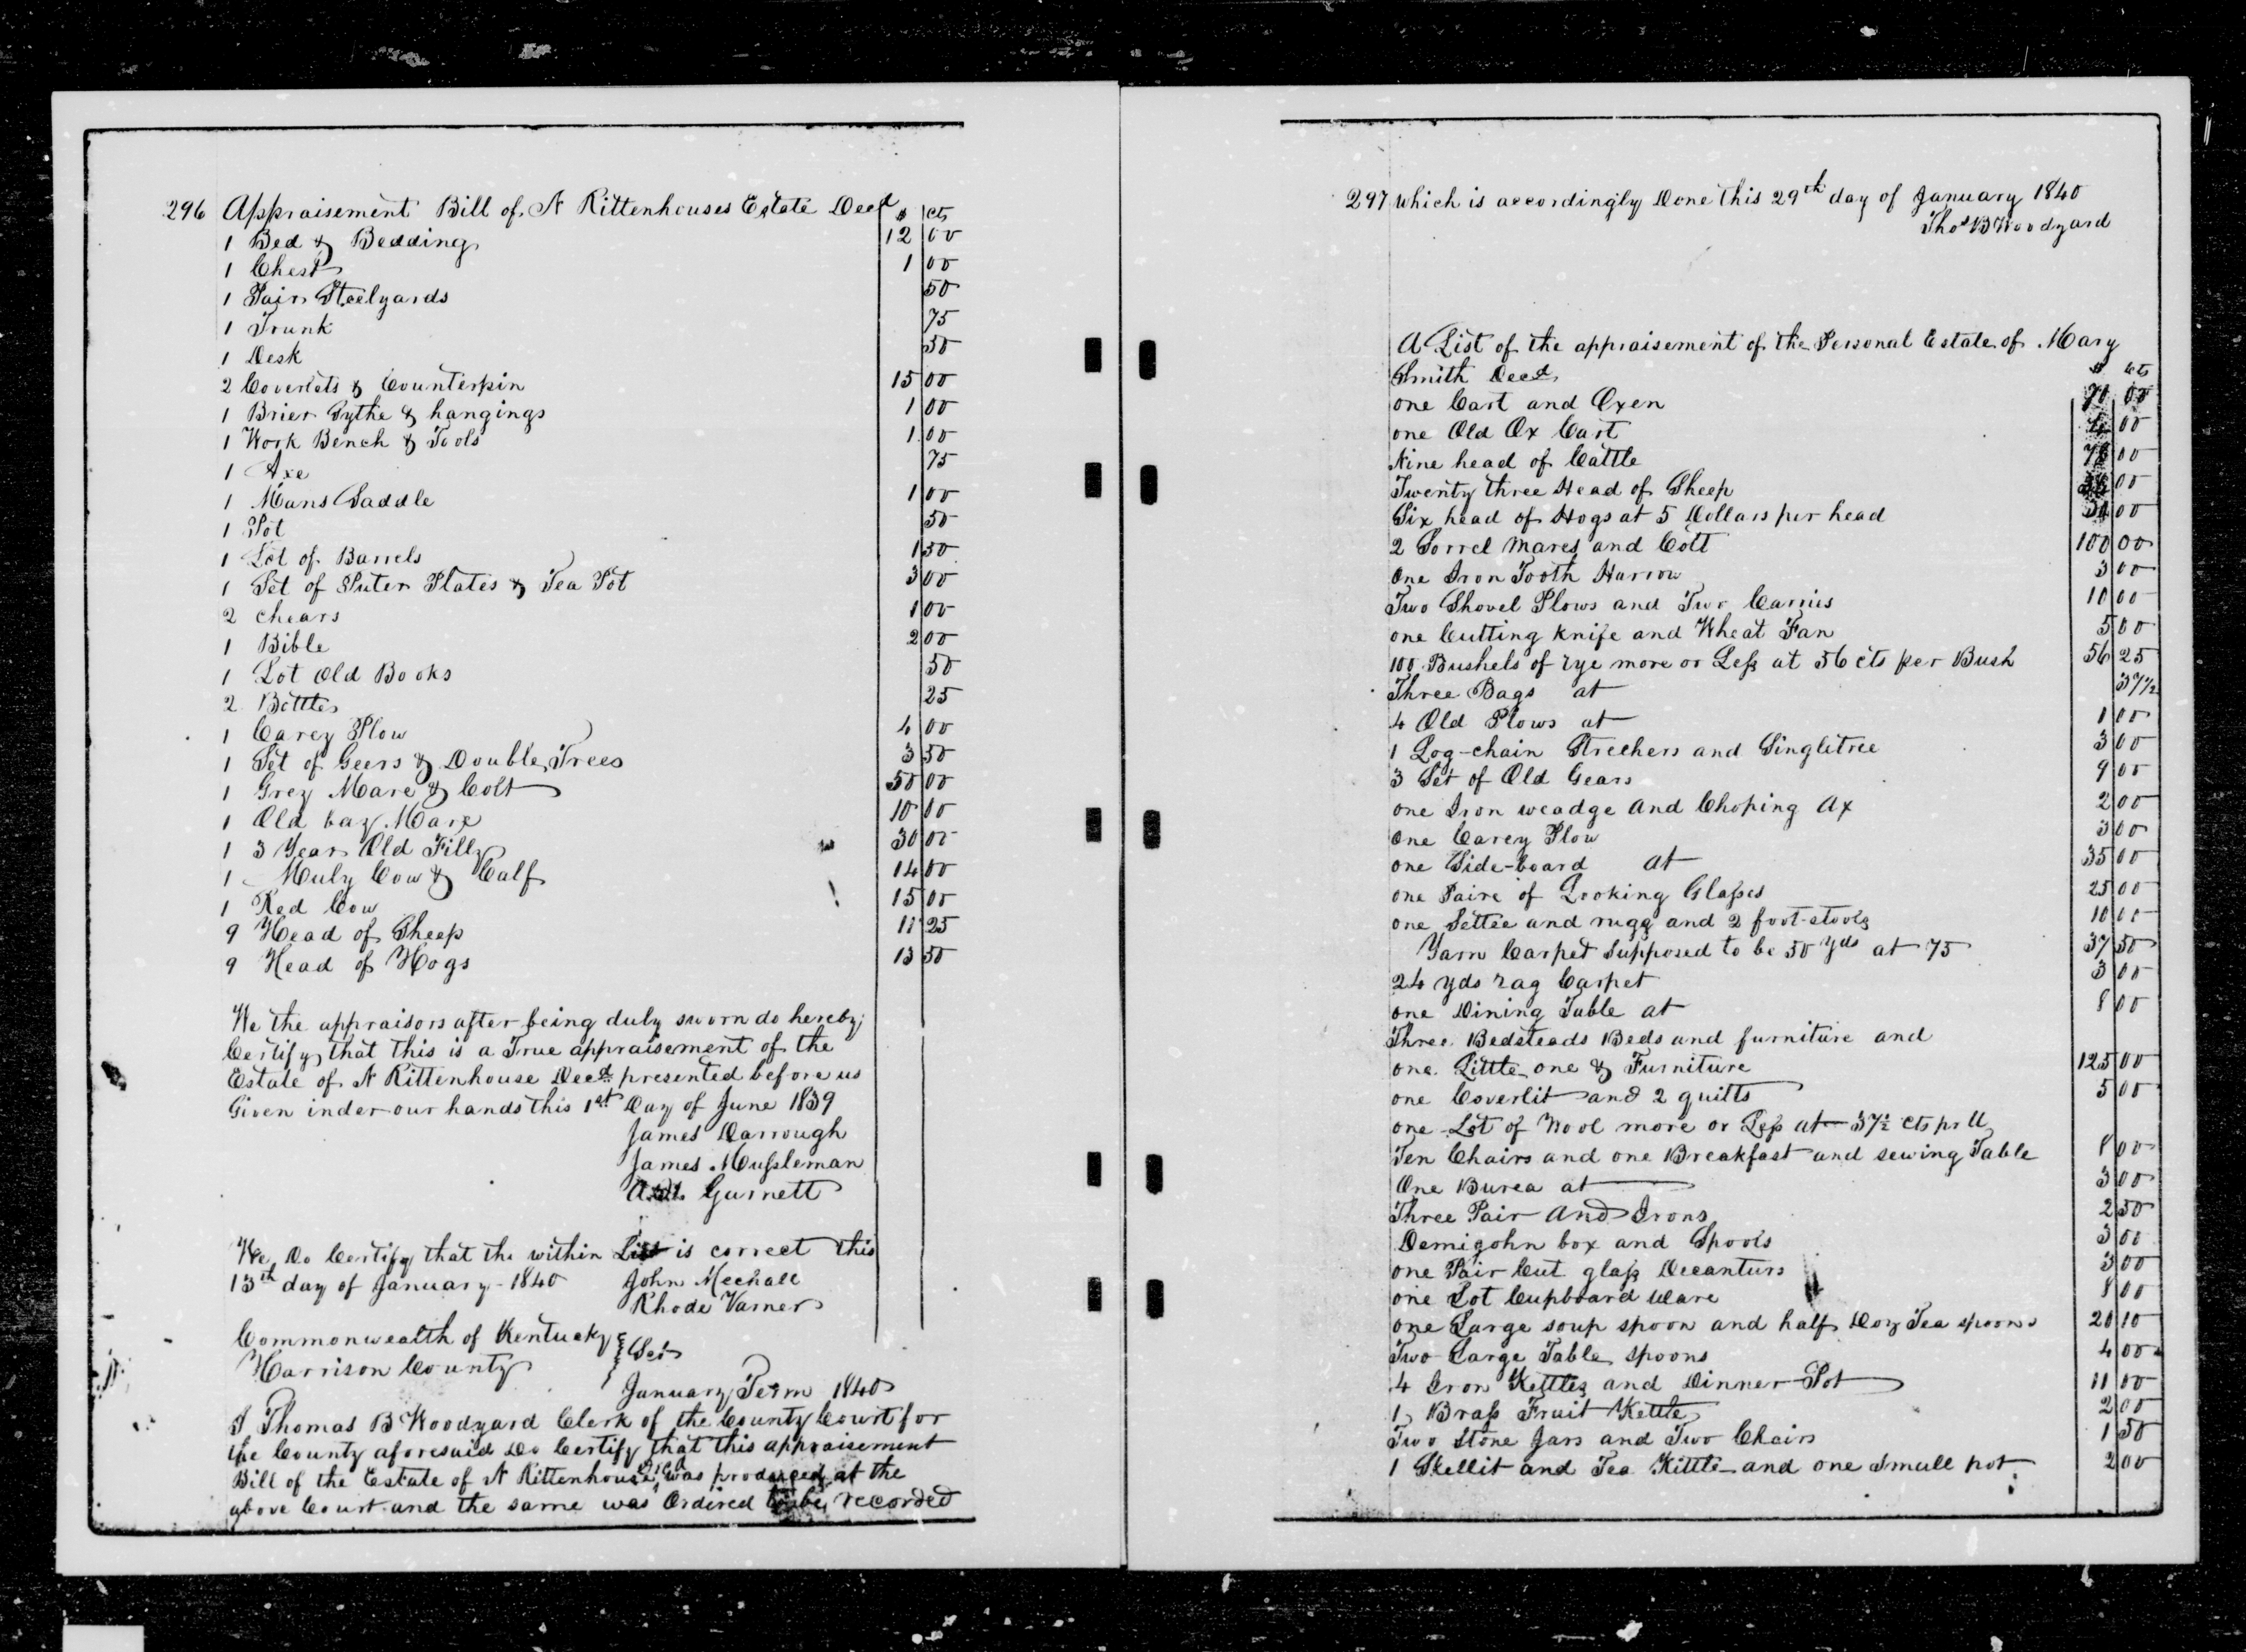 296 Appraisement Bill of N Rittenhouses Estate Decd $ cts
1 Bed & Bedding 12 00
1 Chest 1 00
1 Pair Steelyards 50
1 Trunk 75
1 Desk 50
2 Coverlets & Counterpin 15 00
1 Brier Sythe & hangings 1 00
1 Work Bench & Tools 1 00
1 Axe 75
1 Mans Saddle 1 00
1 Pot 50
1 Lot of Barrels 1 50
1 Set of Puter Plates & Tea Pot 3 00
2 chears 1 00
1 Bible 2 00
1 Lot Old Books 50
2 Bottles 25
1 Carey Plow 4 00
1 Set of Geers & Double Trees 3 50
1 Grey Mare & Colt 50 00
1 Old bay Mare 10 00
1 3 Year Old Filly 30 00
1 Muly Cow & Calf 14 00
1 Red Cow 15 00
9 Head of Sheep 11 25
9 Head of Hogs 13 50
We the appraisors after being duly sworn do hereby
Certify that this is a True appraisement of the
Estate of N Rittenhouse Decd presented before us
Given inder our hands this 1st Day of June 1839
James Darrough
James Mussleman
Gurnett
We Do Certify that the within List is correct this
13th day of January 1840 John Mechall
Rhode Varner
Commonwealth of Kentucky } Sct
Harrison County
January Term 1840
I Thomas B Woodyard Clerk of the County Court for
the County aforesaid Do Certify that this appraisement
Bill of the Estate of N Rittenhouse Decd was produced at the
above Court and the same was Ordired to be recorded
297 which is accordingly Done this 29th day of January 1840
Thos B Woodyard
A List of the appraisement of the Personal Estate of Mary
Smith Decd $ cts
one Cart and Oxen 70 00
one Old Ox Cart 00
Nine head of Cattle 00
Twenty three Head of Sheep 00
Six head of Hogs at 5 Dollars per head 30 00
2 Sorrel Mares and Colt 100 00
One Iron Tooth Harrow 3 00
Two Shovel Plows and Two Carries 10 00
one Cutting knife and Wheat Fan 5 00
100 Bushels of rye more or Less at 56 cts per Bush 56 25
Three Bags at 37½
4 Old Plows at 1 00
1 Log-chain Strechers and Singletree 3 00
3 Set of Old Gears 9 00
one Iron weadge and Choping Ax 2 00
One Carey Plow 3 00
one Side-board at 35 00
one Paire of Looking Glasses 25 00
one Settee and rugg and 2 foot-stools 10 00
Yarn Carpet Supposed to be 50 yds at 75 37 50
24 yds rag Carpet 3 00
one Dining Table at 8 00
Three Bedsteads Beds and furniture and
one Little one & Furniture 125 00
one Coverlit and 2 quilts 5 00
one Lot of Wool more or Less at 37½ cts pr lb
Ten Chairs and one Breakfast and sewing Table 8 00
One Burea at 3 00
Three Pair And Irons 2 50
Demijohn box and Spools 3 00
one Pair Cut glass Decanturs 3 00
one Lot Cupboard Ware 8 00
one Large soup spoon and half Doz Tea spoons 20 10
Two Large Table spoons 4 00
4 Iron Kettles and Dinner Pot 11 00
1 Brass Fruit Kettle 2 00
Two Stone Jars and Two Chairs 1 50
1 Skellit and Tea Kittle and one Small pot 2 00